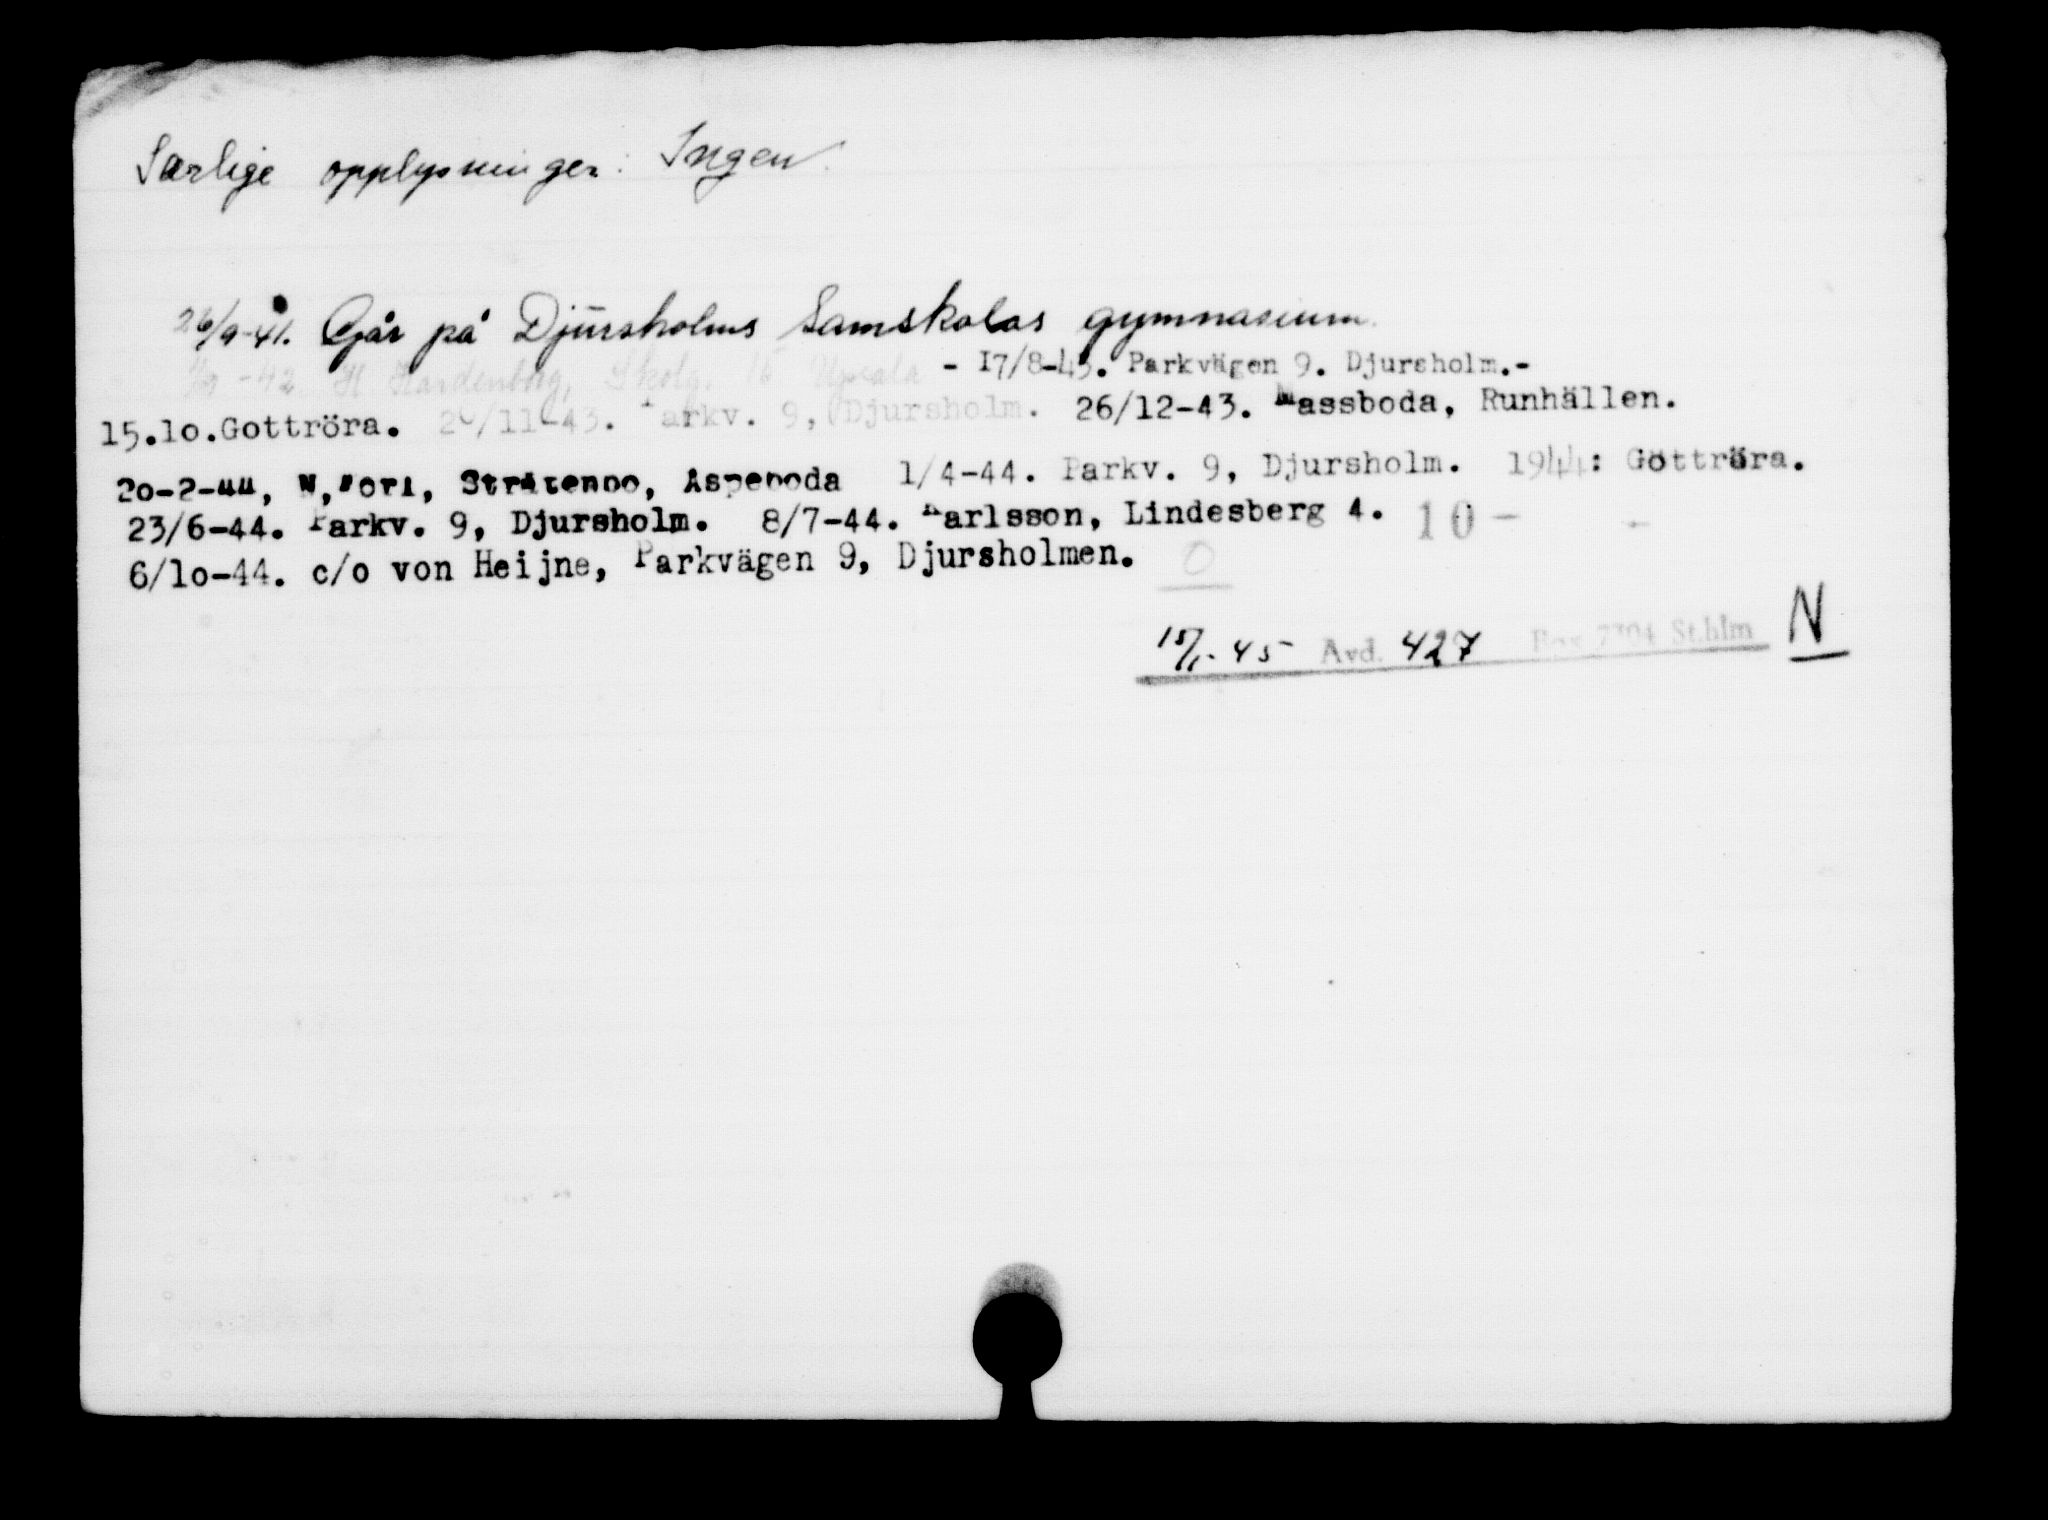 Særlige opplysninger: Ingen.
26/9-41. Går på Djursholms Samskolas gymnasium.
-42 H Hardenborg, Skolg. 15 Upsala - 17/8-43. Parkvägen 9. Djursholm.-
15.10.Gottröra. 20/11-43. Parkv. 9, Djursholm. 26/12-43. Massboda, Runhällen.
20-2-44, Stråtenbo, Aspeboda 1/4-44. Parkv. 9, Djursholm. 1944: Göttröra.
23/6-44. Parkv. 9, Djursholm. 8/7-44. Karlsson, Lindesberg 4. 10 -
6/10-44. c/o von Heijne, Parkvägen 9, Djursholmen. 0
15/1-45 Avd. 427 Box 7704 St.hlm N